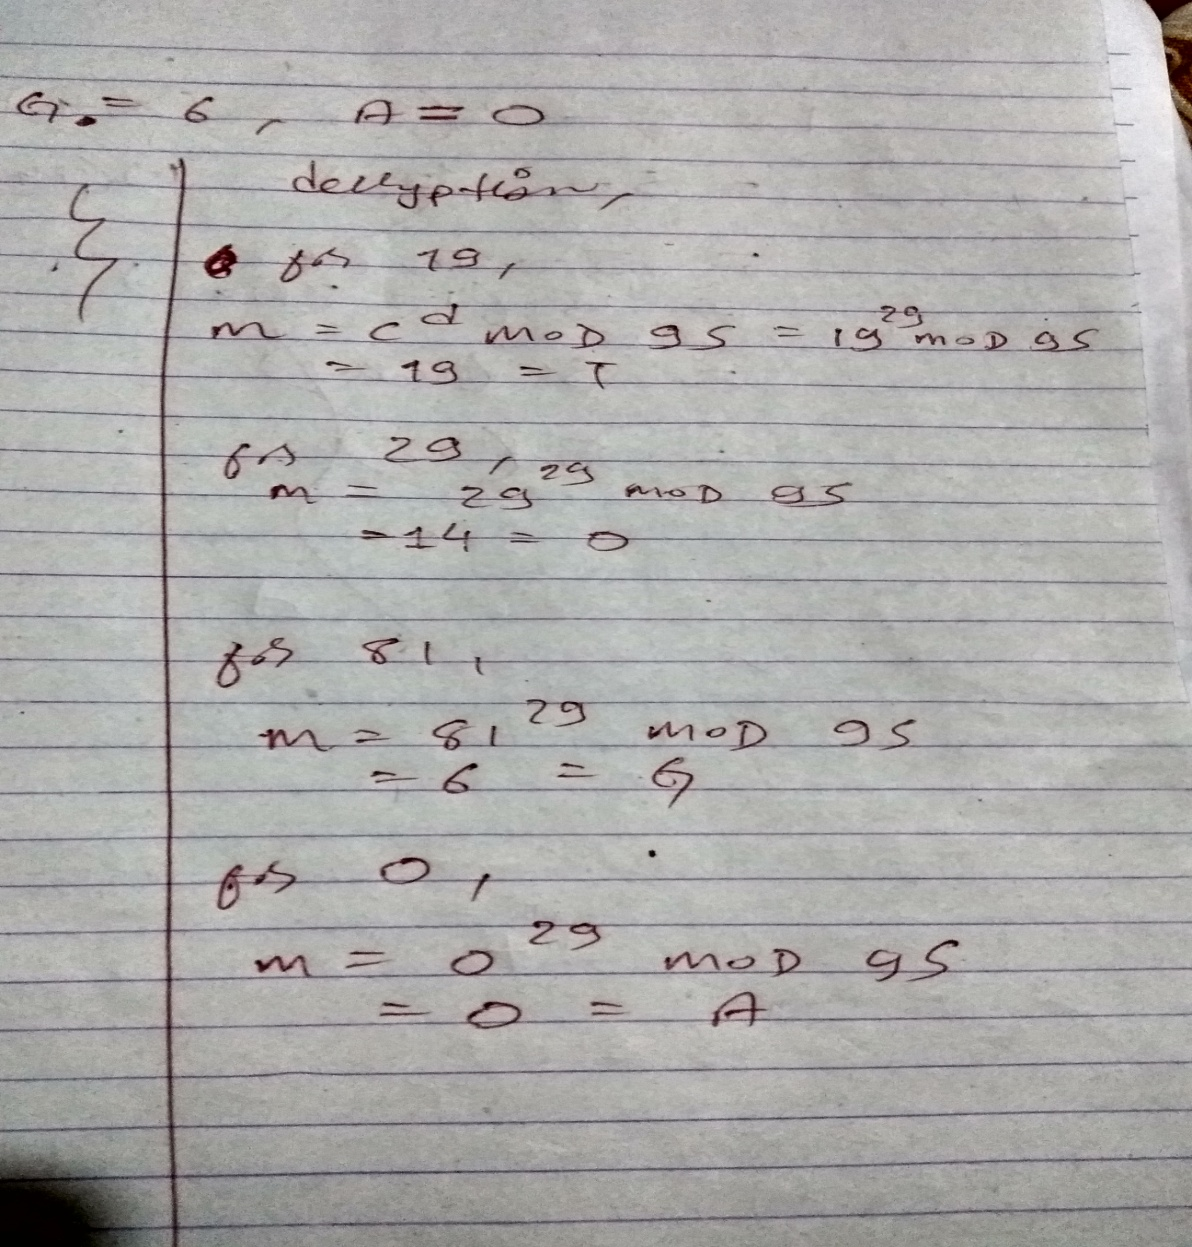 G = 6, A = 0
decryption,
for 19,
m = c^d MOD 95 = 19^29 MOD 95
= 19 = T
for 29,
m = 29^29 MOD 95
= 14 = O
for 81,
m = 81^29 MOD 95
= 6 = G
for 0,
m = 0^29 MOD 95
= 0 = A